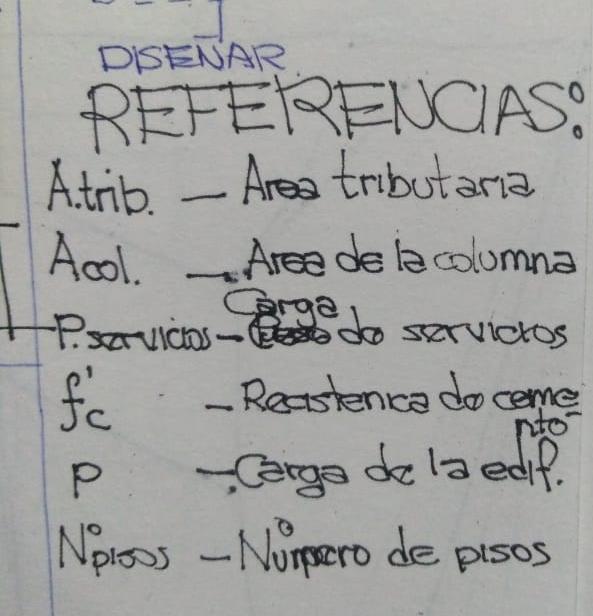 DISEÑAR
REFERENCIAS:
A.trib. - Area tributaria
Acol. - Area de la columna
P.servicios - Carga de servicios
f'c - Resistenica de ceme
nto-
P - Carga de la edif.
N°pisos - Número de pisos